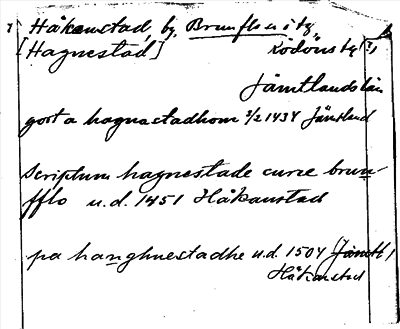 Håkanstad, by, Brunflo s i ty
[Hagnestad] Rödöns ty (?)
Jämtlands län
gort a hagnastadhom 3/2 1434 Jämtland
Scriptum hagnestade curie brun-
fflo u.d. 1451 Håkanstad
pa hanghnestadhe u.d. 1504 (Jämtl)
Håkanstad